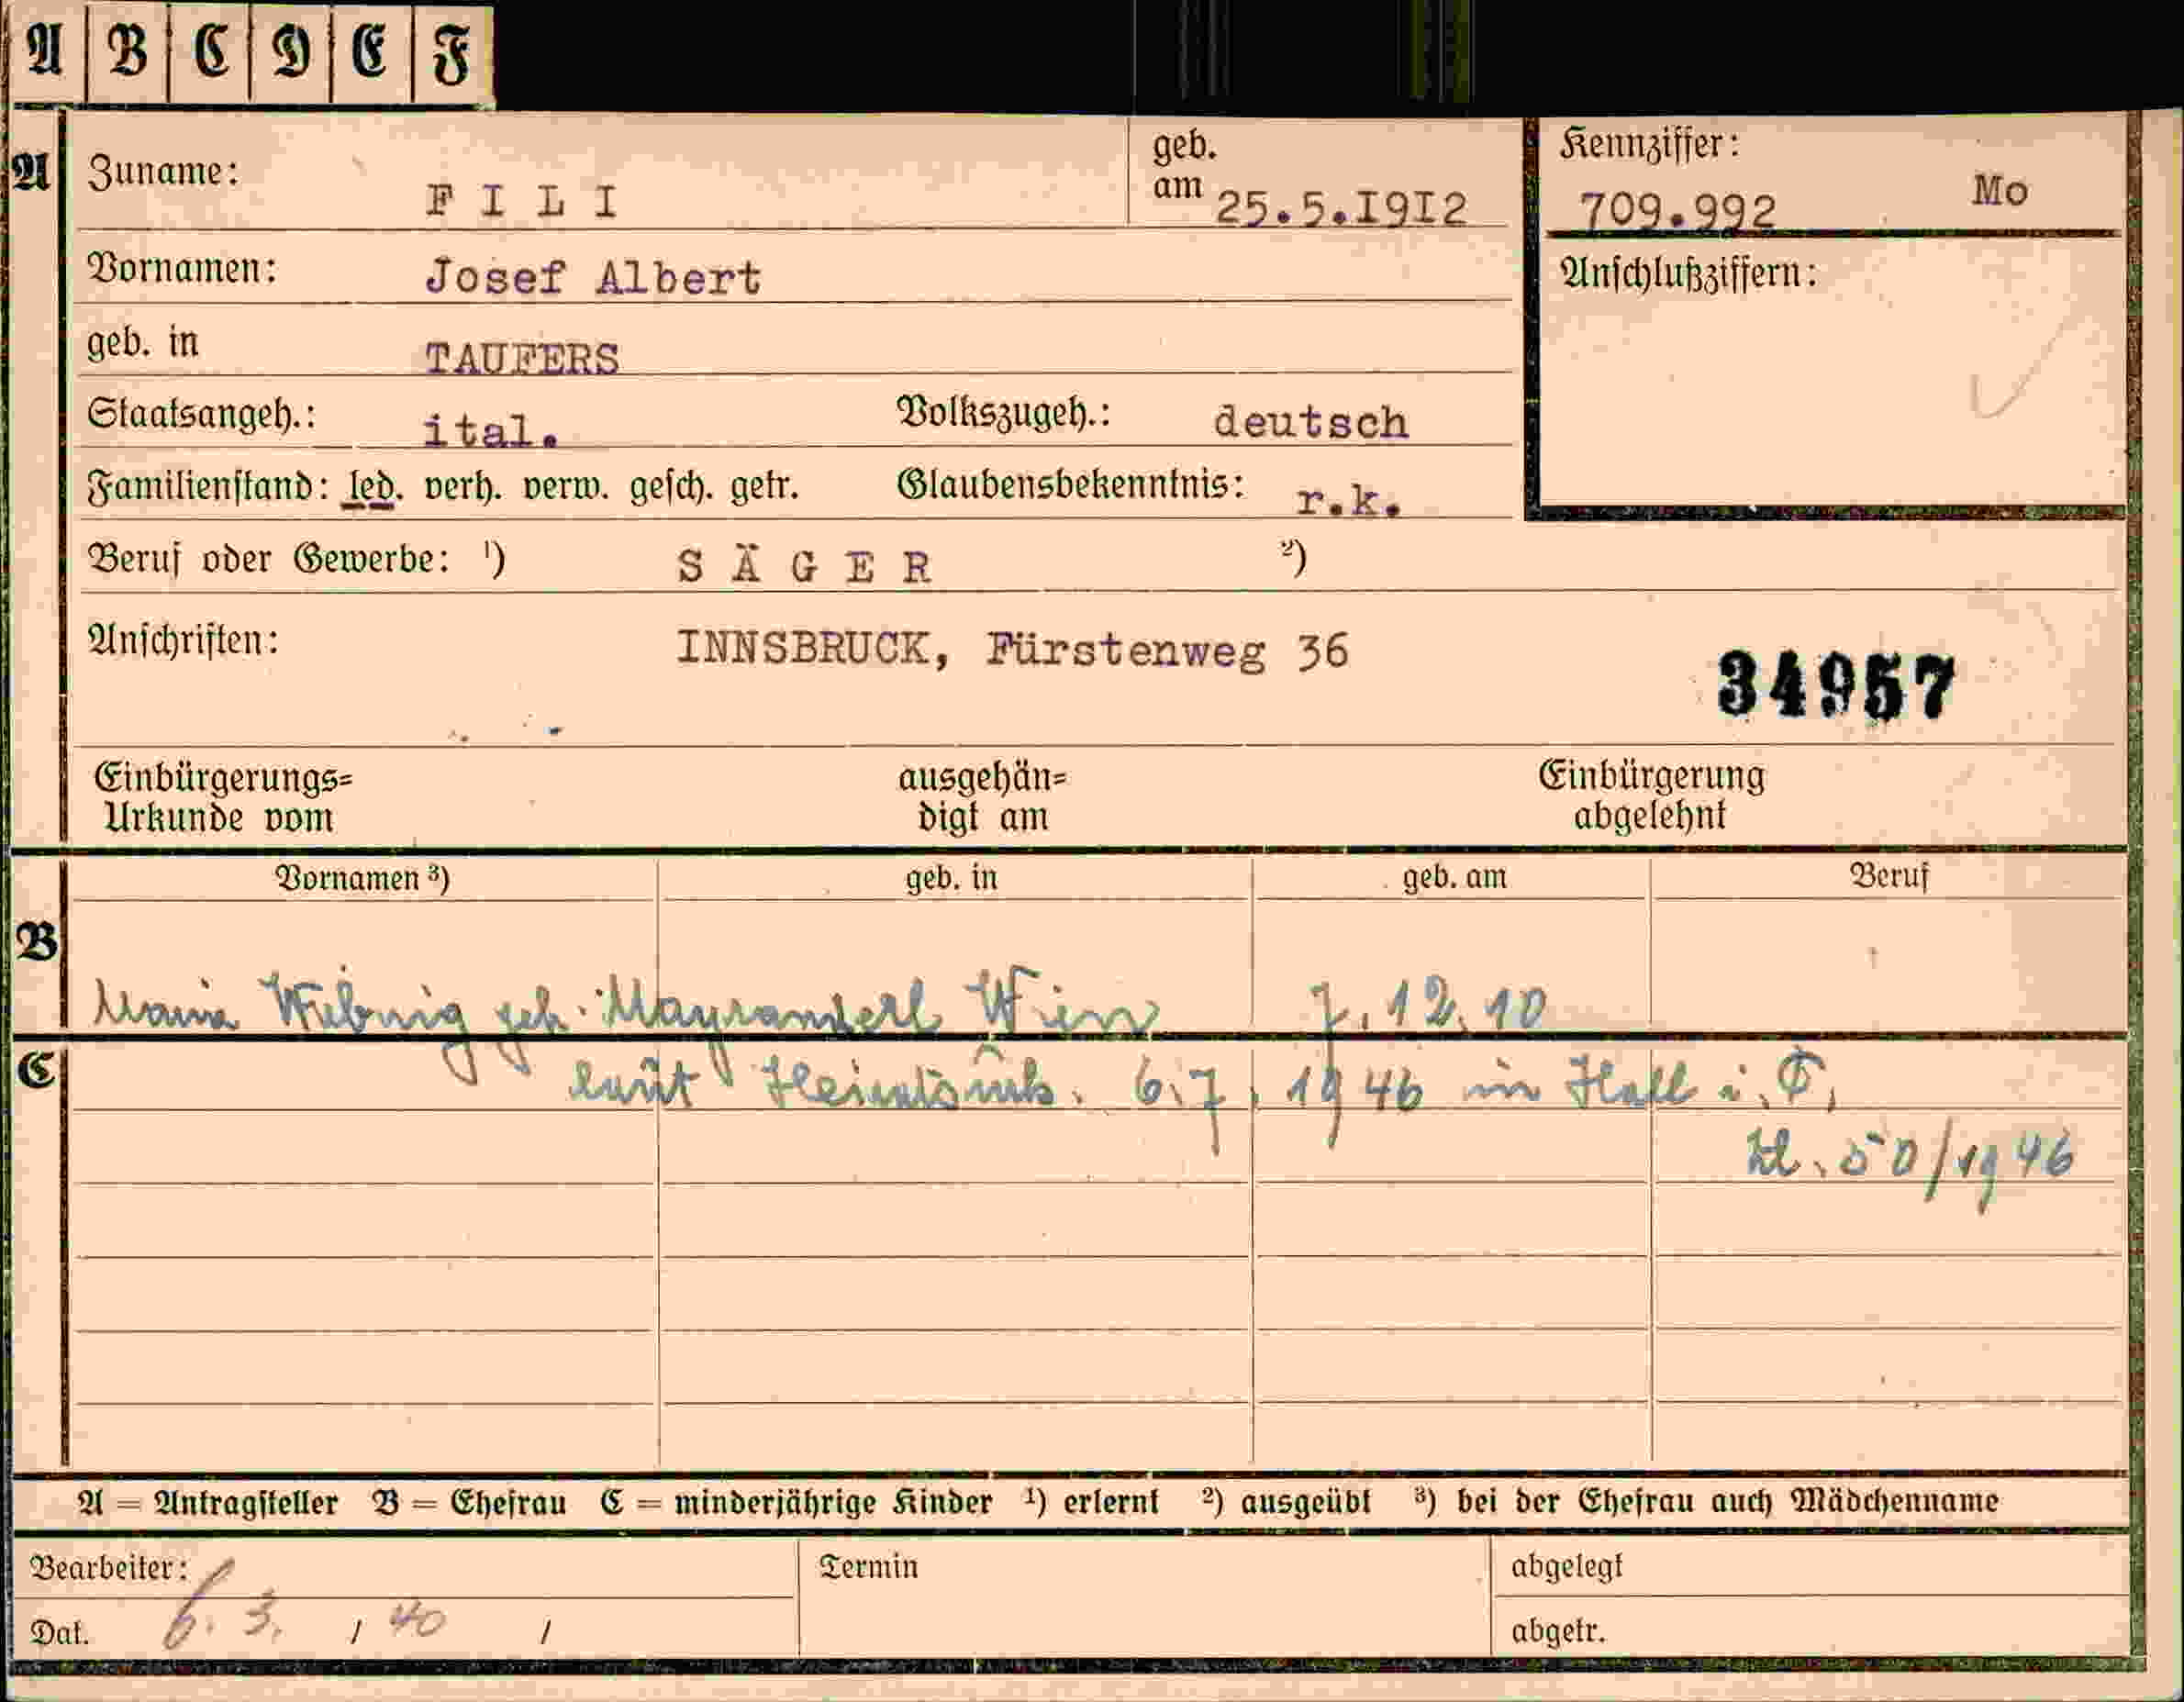 A B C D E F
A Zuname: FILI geb. am 25.5.I9I2 Kennziffer: 709.992 Mo
Vornamen: Josef Albert Anschlußziffern:
geb. in TAUFERS
Staatsangeh.: ital. Volkszugeh.: deutsch
Familienstand: led. verh. verw. gesch. getr. Glaubensbekenntnis: r.k.
Beruf oder Gewerbe: 1) SÄGER 2)
Anschriften: INNSBRUCK, Fürstenweg 36
34957
Einbürgerungs= ausgehän= Einbürgerung
Urkunde vom digt am abgelehnt
Vornamen 3) geb. in geb. am Beruf
B
Maria geb. Wien 7.12.10
C laut 6.7.1946 in Hall i. T.
Zl. 50/1946
A = Antragsteller B = Ehefrau C = minderjährige Kinder 1) erlernt 2) ausgeübt 3) bei der Ehefrau auch Mädchenname
Bearbeiter: Termin abgelegt
Dat. 6. 3. / 40 / abgetr.